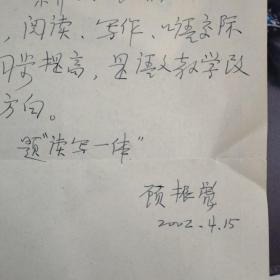 ，阅读、写作、口语交际
同步提高，是语文教学改
方向。
题"读写一体"
顾振
2002.4.15